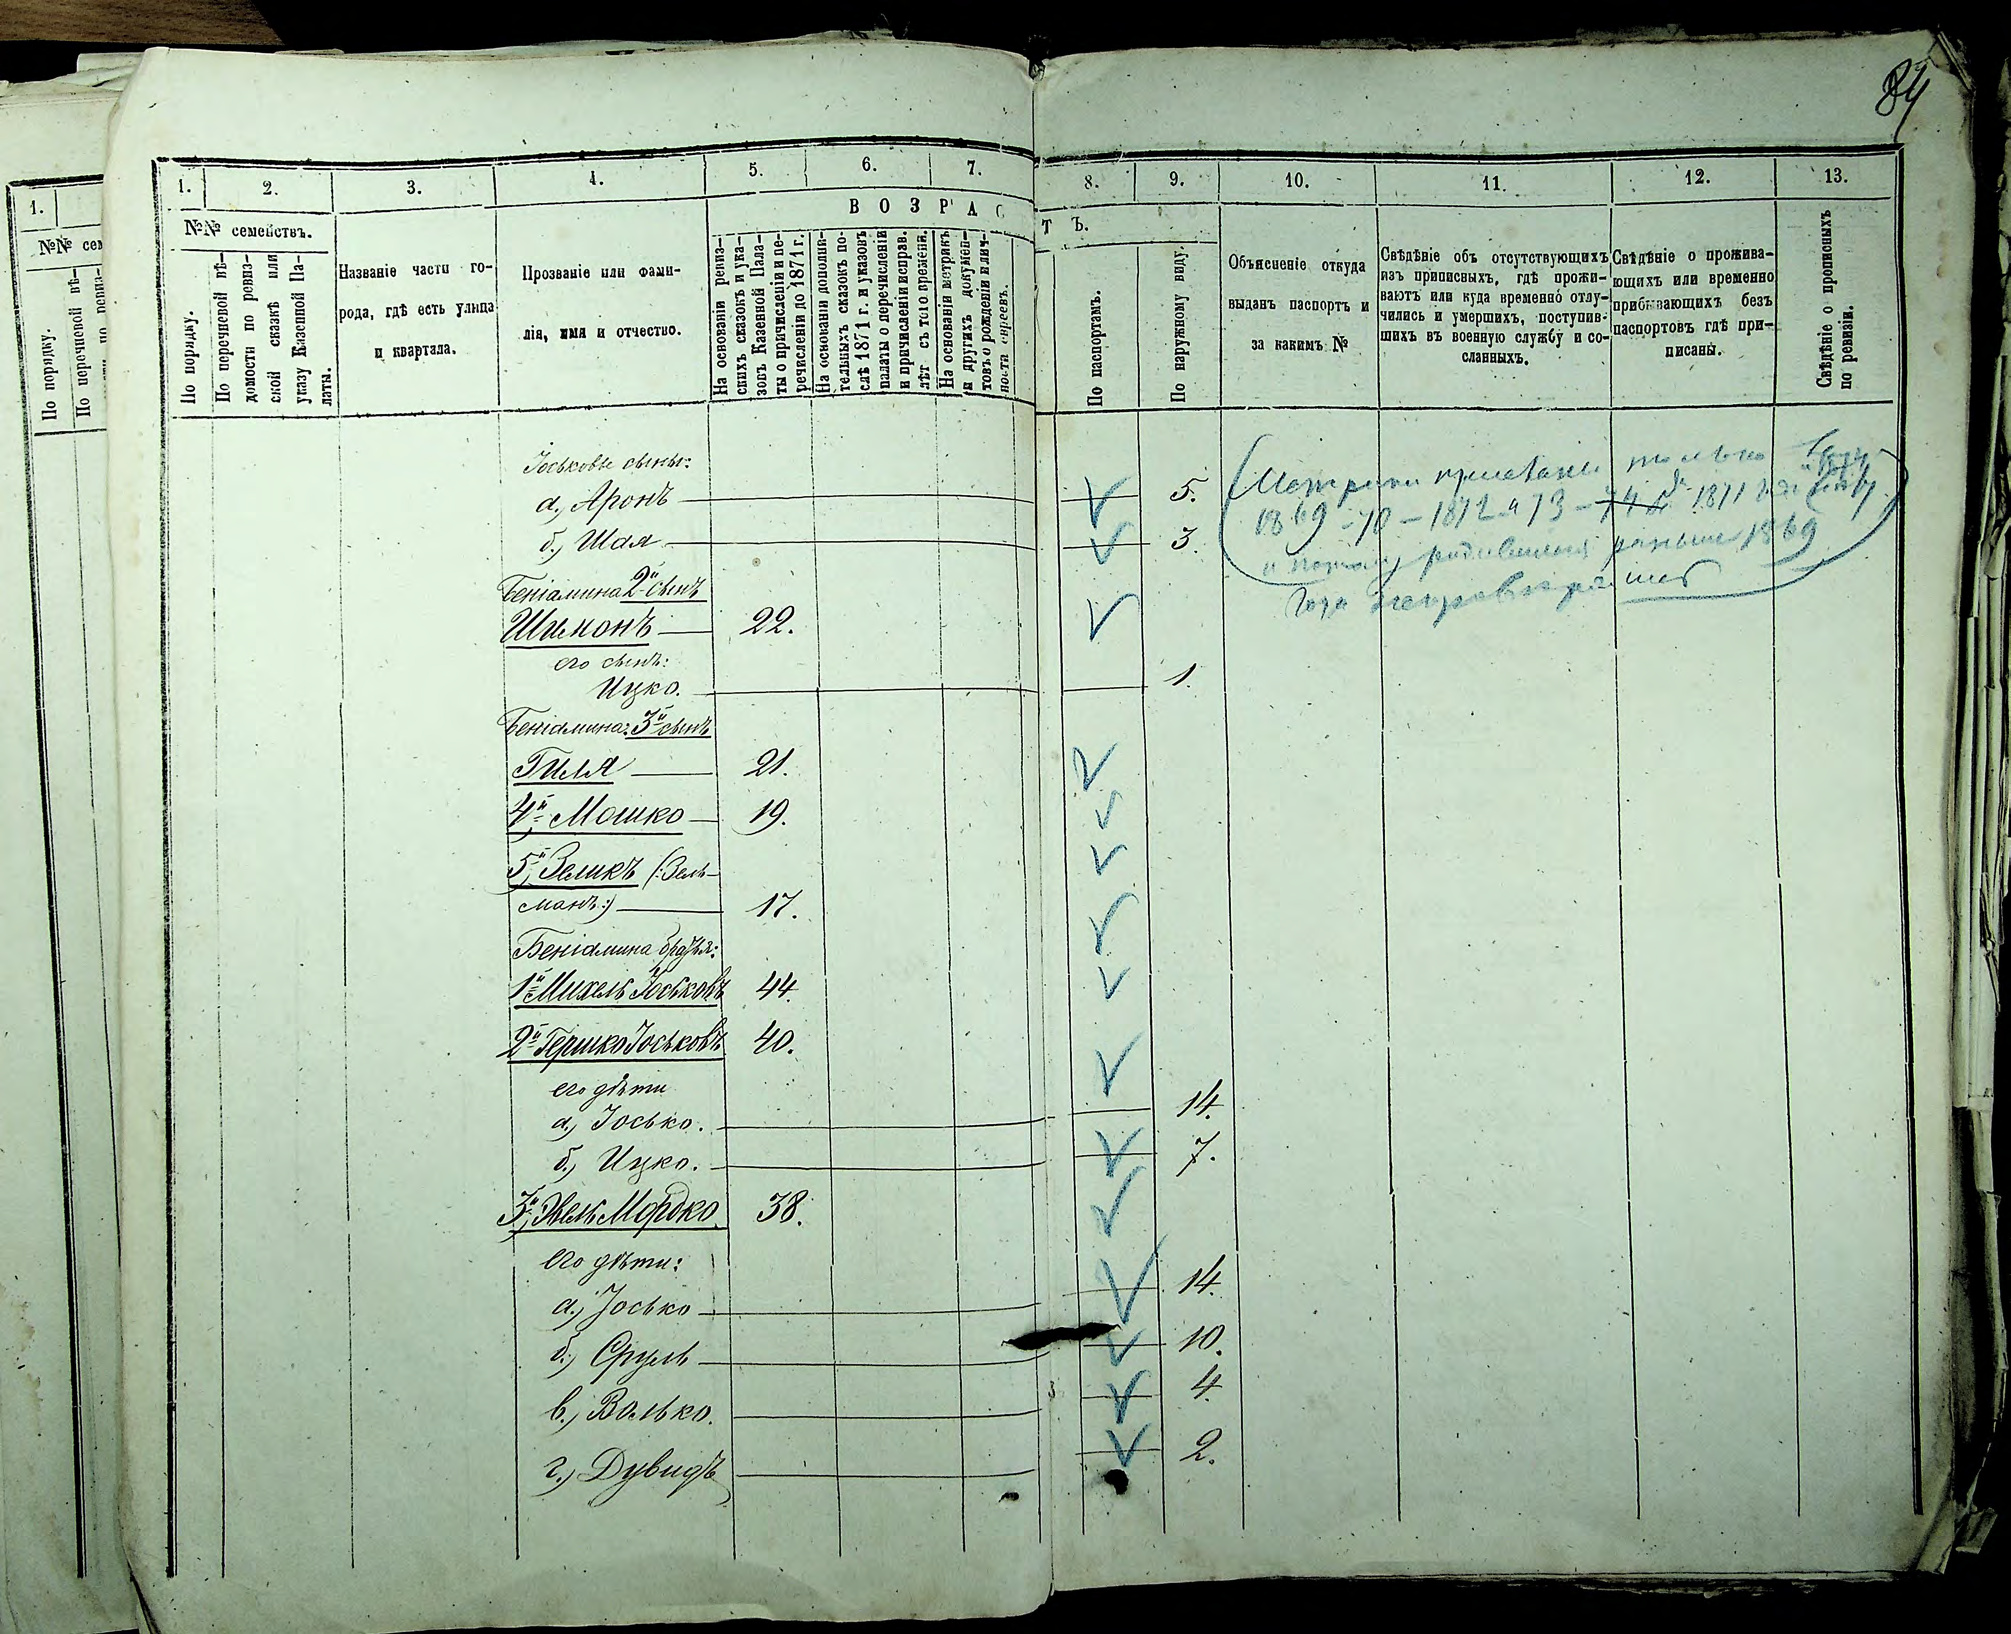 84
1.
№№ сем
По порядку.
По перечневой вѣ-
1.
2.
3.
4.
5.
6.
7.
8.
9.
10.
11.
12.
13.
№№ семействъ.
По порядку.
По перечневой вѣ-
домости по ревиз-
ской сказкѣ или
указу Казенной Па-
латы.
Названіе части го-
рода, гдѣ есть улица
и квартала.
Прозваніе или фами-
лія, имя и отчество.
ВОЗРАСТЪ.
На основаніи ревиз-
скихъ сказокъ и ука-
зовъ Казенной Пала-
ты о причисленіи и пе-
речисленіи до 1871 г.
На основаніи дополни-
тельныхъ сказокъ по-
слѣ 1871 г. и указовъ
палаты о перечисленіи
и причисленіи исправ.
лѣт съ того времени.
На основаніи метрикъ
и другихъ докумен-
товъ о рожденіи и лич-
ности евреевъ.
По паспортамъ.
По наружному виду.
Объясненіе откуда
выданъ паспортъ и
за какимъ №
Свѣдѣніе объ отсутствующихъ
изъ приписныхъ, гдѣ прожи-
ваютъ или куда временно отлу-
чились и умершихъ, поступив-
шихъ въ военную службу и со-
сланныхъ.
Свѣдѣніе о прожива-
ющихъ или временно
прибывающихъ безъ
паспортовъ гдѣ при-
писаны.
Свѣдѣніе о прописныхъ
по ревизіи.
Іоськовы сыны:
а.) Аронъ 5.
б.) Шая 3.
Беніамина 2й сынъ
Шимонъ 22.
его сынъ:
Ицко. 1.
Беніамина 3й сынъ
Гиля 21.
4й Мошко 19.
5й Зеликъ (:Зель-
манъ:) 17.
Беніамина братья:
1й Михель Іоськовъ 44.
2й Гершко Іоськовъ 40.
его дѣти
а.) Іосько. 14.
б.) Ицко. 7.
3й Мордко 38.
его дѣти:
а.) Іосько 14.
б.) Сруль 10.
в.) Волько. 4.
г.) Дувидъ 2.
Метрики только
1869-70-1872 и 73 1871
и потому родившиеся раньше 1869
года